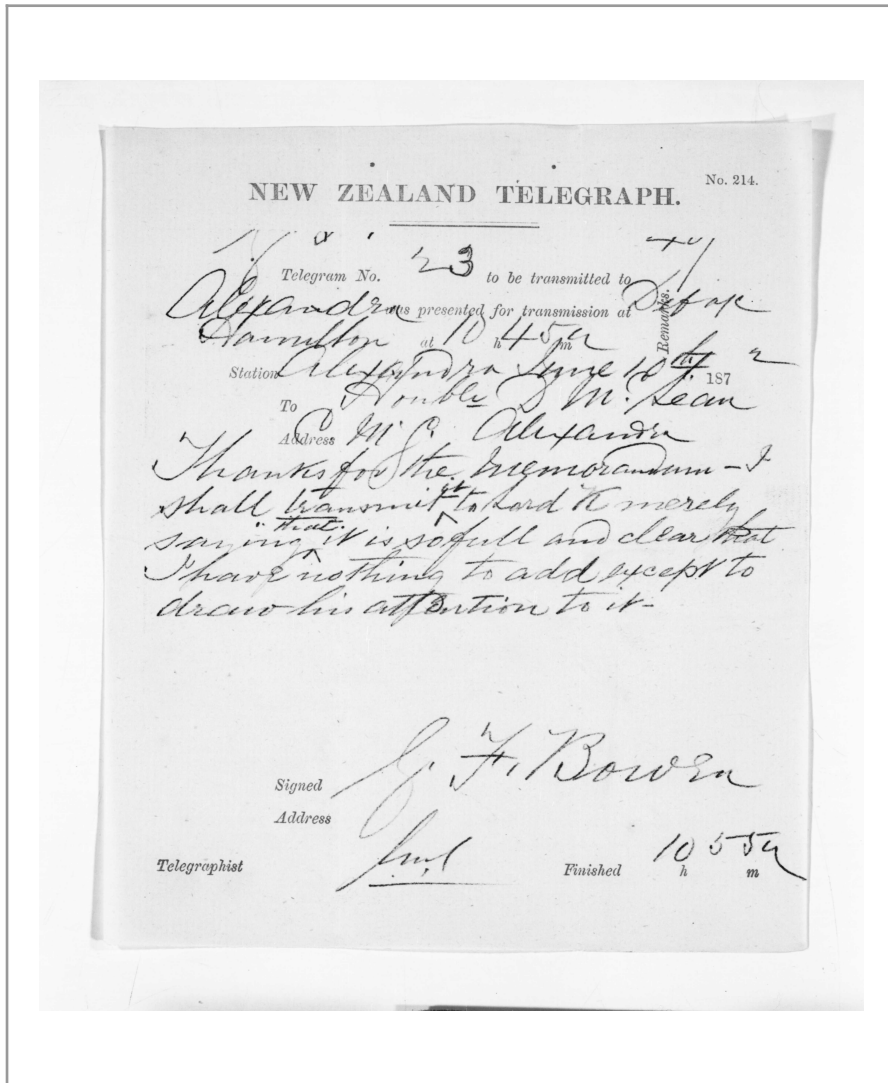 No. 214.
NEW ZEALAND TELEGRAPH.
Telegram No. 23 to be transmitted to
Alexandra was presented for transmission at
Hamilton at 10 h 45 m
Remarks.
Station Alexandra June 10th 1872
To Honble D McLean
Address C M C Alexandra
Thanks for the memorandum - I
shall transmit it to Lord K merely
saying that it is so full and clear that
I have nothing to add except to
draw his attention to it -
Signed G. F. Bowen
Address
Telegraphist
Finished 10 h 55 m